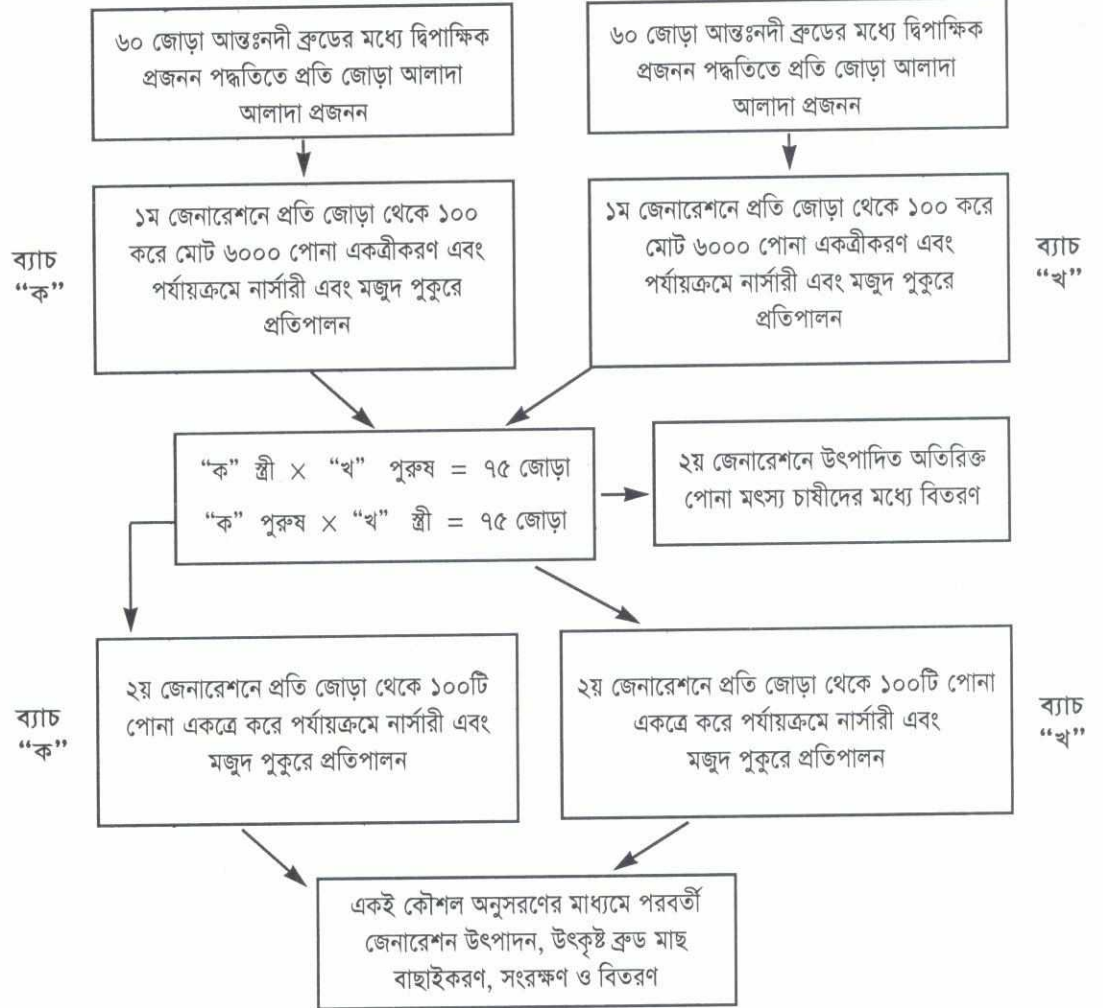 ৬০ জোড়া আন্তঃনদী ব্রুডের মধ্যে দ্বিপাক্ষিক
প্রজনন পদ্ধতিতে প্রতি জোড়া আলাদা
আলাদা প্রজনন
৬০ জোড়া আন্তঃনদী ব্রুডের মধ্যে দ্বিপাক্ষিক
প্রজনন পদ্ধতিতে প্রতি জোড়া আলাদা
আলাদা প্রজনন
ব্যাচ
“ক”
১ম জেনারেশনে প্রতি জোড়া থেকে ১০০
করে মোট ৬০০০ পোনা একত্রীকরণ এবং
পর্যায়ক্রমে নার্সারী এবং মজুদ পুকুরে
প্রতিপালন
১ম জেনারেশনে প্রতি জোড়া থেকে ১০০ করে
মোট ৬০০০ পোনা একত্রীকরণ এবং
পর্যায়ক্রমে নার্সারী এবং মজুদ পুকুরে
প্রতিপালন
ব্যাচ
“খ”
“ক” স্ত্রী × “খ” পুরুষ = ৭৫ জোড়া
“ক” পুরুষ × “খ” স্ত্রী = ৭৫ জোড়া
২য় জেনারেশনে উৎপাদিত অতিরিক্ত
পোনা মৎস্য চাষীদের মধ্যে বিতরণ
ব্যাচ
“ক”
২য় জেনারেশনে প্রতি জোড়া থেকে ১০০টি
পোনা একত্রে করে পর্যায়ক্রমে নার্সারী এবং
মজুদ পুকুরে প্রতিপালন
২য় জেনারেশনে প্রতি জোড়া থেকে ১০০টি পোনা
একত্রে করে পর্যায়ক্রমে নার্সারী এবং
মজুদ পুকুরে প্রতিপালন
ব্যাচ
“খ”
একই কৌশল অনুসরণের মাধ্যমে পরবর্তী
জেনারেশন উৎপাদন, উৎকৃষ্ট ব্রুড মাছ
বাছাইকরণ, সংরক্ষণ ও বিতরণ